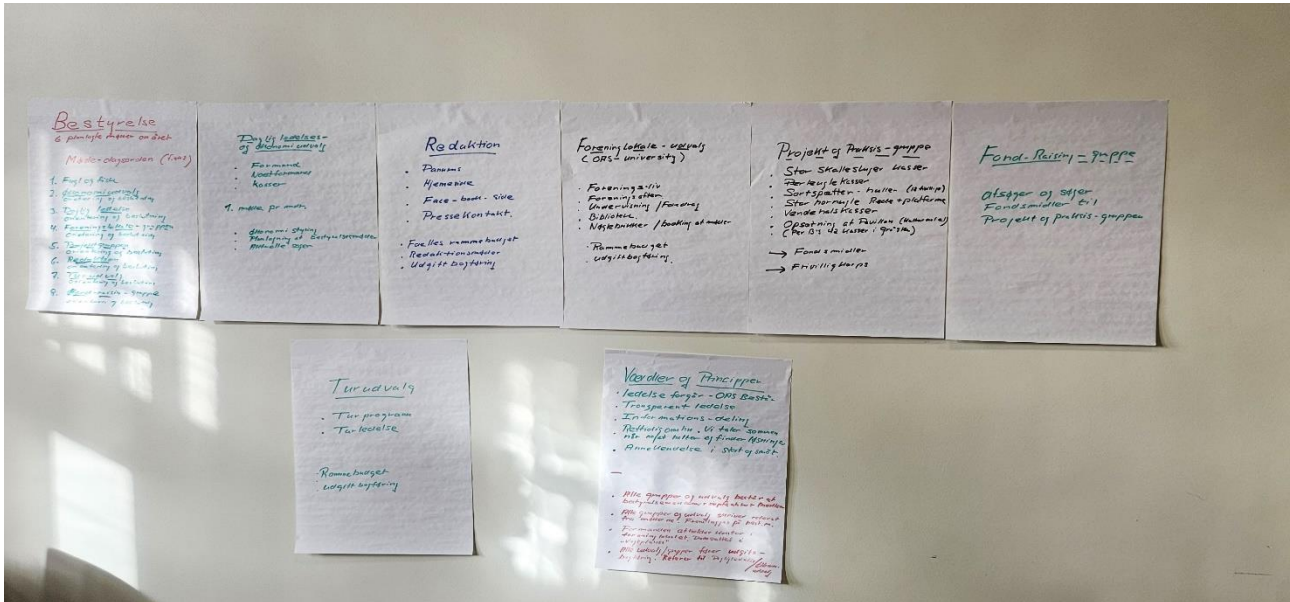 Bestyrelse
6 planlagte møder om året
Møde-dagsorden (fast)
1. Fugl og Fisk
2. Økonomiudvalg
orientering og beslutning
3. Daglig ledelse
orientering og beslutning
4. Foreningslokale-gruppen
orientering og beslutning
5.
orientering og beslutning
6. Redaktion
orientering og beslutning
7. Turudvalg
orientering og beslutning
8. Fond-raising-gruppe
orientering og beslutning
Daglig ledelses-
og økonomi udvalg
Formand
Næstformand
Kasser
1. møde pr mdr.
Økonomi styring
Planlægning af bestyrelsesmøder
Aktuelle sager
Redaktion
Panurus
Hjemeside
Face-book-side
Pressekontakt.
Fælles rammebudget
Redaktionsmøder
Udgift bogføring
Forening lokale - udvalg
(ORS-university)
Forenings-liv
Foreningsaften
Undervisning / Foredrag
Bibliotek
Nøglebrikker / booking af møder
Rammebudget
udgift bogføring.
Projekt og Praksis-gruppe
Stor Skallesluger kasser
Perleugle kasser
Sortspætte-huller
Stor hornugle Rede-platforme
Vendehalskasser
Opsætning af Pavillon
(Per B's 42 kasser i Gribskov)
→ Fondsmidler
→ Frivilligkorps
Fond-Raising-gruppe
Afsøger og søger
Fondsmidler til
Projekt og praksis-gruppen
Turudvalg
Tur program
Tur ledelse
Rammebudget
udgift bogføring
Værdier og Principper
ledelse foregår - ORS Besty-
Transparent ledelse
Informations-deling
Rettidig omhu. Vi taler sammen
når m/et halter og finder løsninge
Anerkendelse i stort og småt
Alle grupper og udvalg består af
bestyrelsesmedlem +
Alle grupper og udvalg skriver referat
fra møderne. Fremlægges på best.m.
Formanden afholder
forening lokalet.
Alle udvalg/grupper fører udgifts-
bogføring. Referer til Daglig